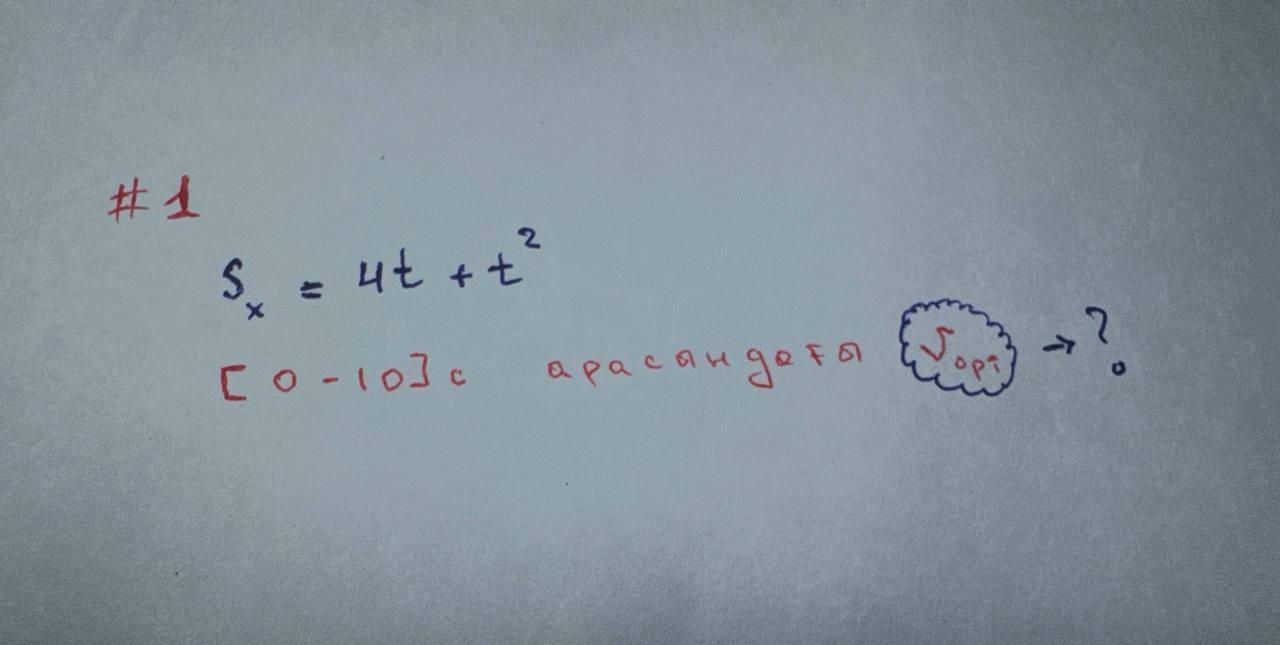 #1
Sₓ = 4t + t²
[0-10] с арасындағы υорт →?